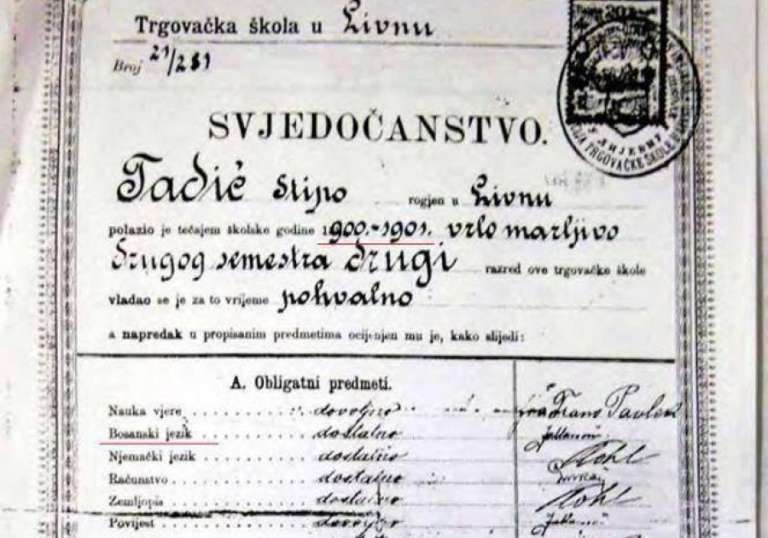 Trgovačka škola u Livnu
Broj 21/281
SVJEDOČANSTVO.
Tadić Stipo rogjen u Livnu
polazio je tečajem školske godine 1900.-1901. vrlo marljivo
drugog semestra drugi razred ove trgovačke škole
vladao se je za to vrijeme pohvalno
a napredak u propisanim predmetima ocijenjen mu je, kako slijedi:
A. Obligatni predmeti.
Nauka vjere dovoljno
Bosanski jezik dostatno
Njemački jezik dostatno
Računstvo dostatno
Zemljopis dostatno
Povijest